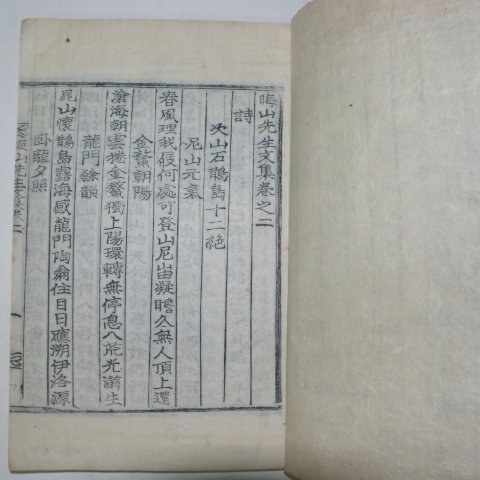 晦山先生文集卷之二
詩
次山石鵲島十二絶
尼山元氣
春風理我屐何處可登山尼峀凝瞻久無人頂上還
金鰲朝陽
滄海朝雲捲金鰲獨上陽環轉無停息八荒光滿生
龍門餘韻
崑山懷鵲島露海感龍門陶翁住目日應溯伊洛源
臥龍夕照
山先生文集卷二